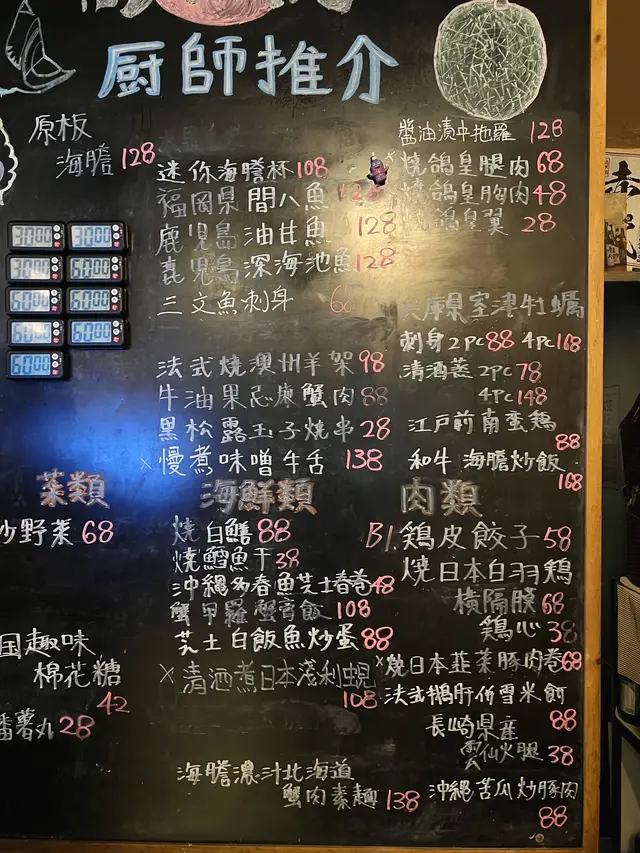 厨師推介
原板
海膽 128
迷你海膽杯 108
福岡県間八魚 128
鹿児島油甘魚 128
鹿児島深海池魚 128
三文魚刺身 68
法式燒澳州羊架 98
牛油果忌廉蟹肉 88
黑松露玉子燒串 28
×慢煮味噌牛舌 138
醬油漬中拖羅 128
燒鴿皇腿肉 68
燒鴿皇胸肉 48
燒鴿皇翼 28
兵庫県室津牡蠣
刺身 2pc 88 4pc 168
清酒蒸 2pc 78
4pc 148
江戸前南蛮鶏
88
和牛海膽炒飯
168
3000 3000
3000 6000
6000 6000
6000 6000
6000
菜類
炒野菜 68
国趣味
棉花糖
42
番薯丸 28
海鮮類
燒白鱔 88
燒鱈魚干 38
沖縄多春魚芝士春卷 48
蟹甲羅蟹膏飯 108
芝士白飯魚炒蛋 88
×清酒煮日本淺利蜆
108
海膽濃汁北海道
蟹肉素麵 138
肉類
B1. 鶏皮餃子 58
燒日本白羽鶏
橫隔膜 68
鶏心 38
×燒日本韮菜豚肉卷 68
法式鵝肝伴雪米餅
88
長崎県産
雲仙火腿 38
沖縄苦瓜炒豚肉
88